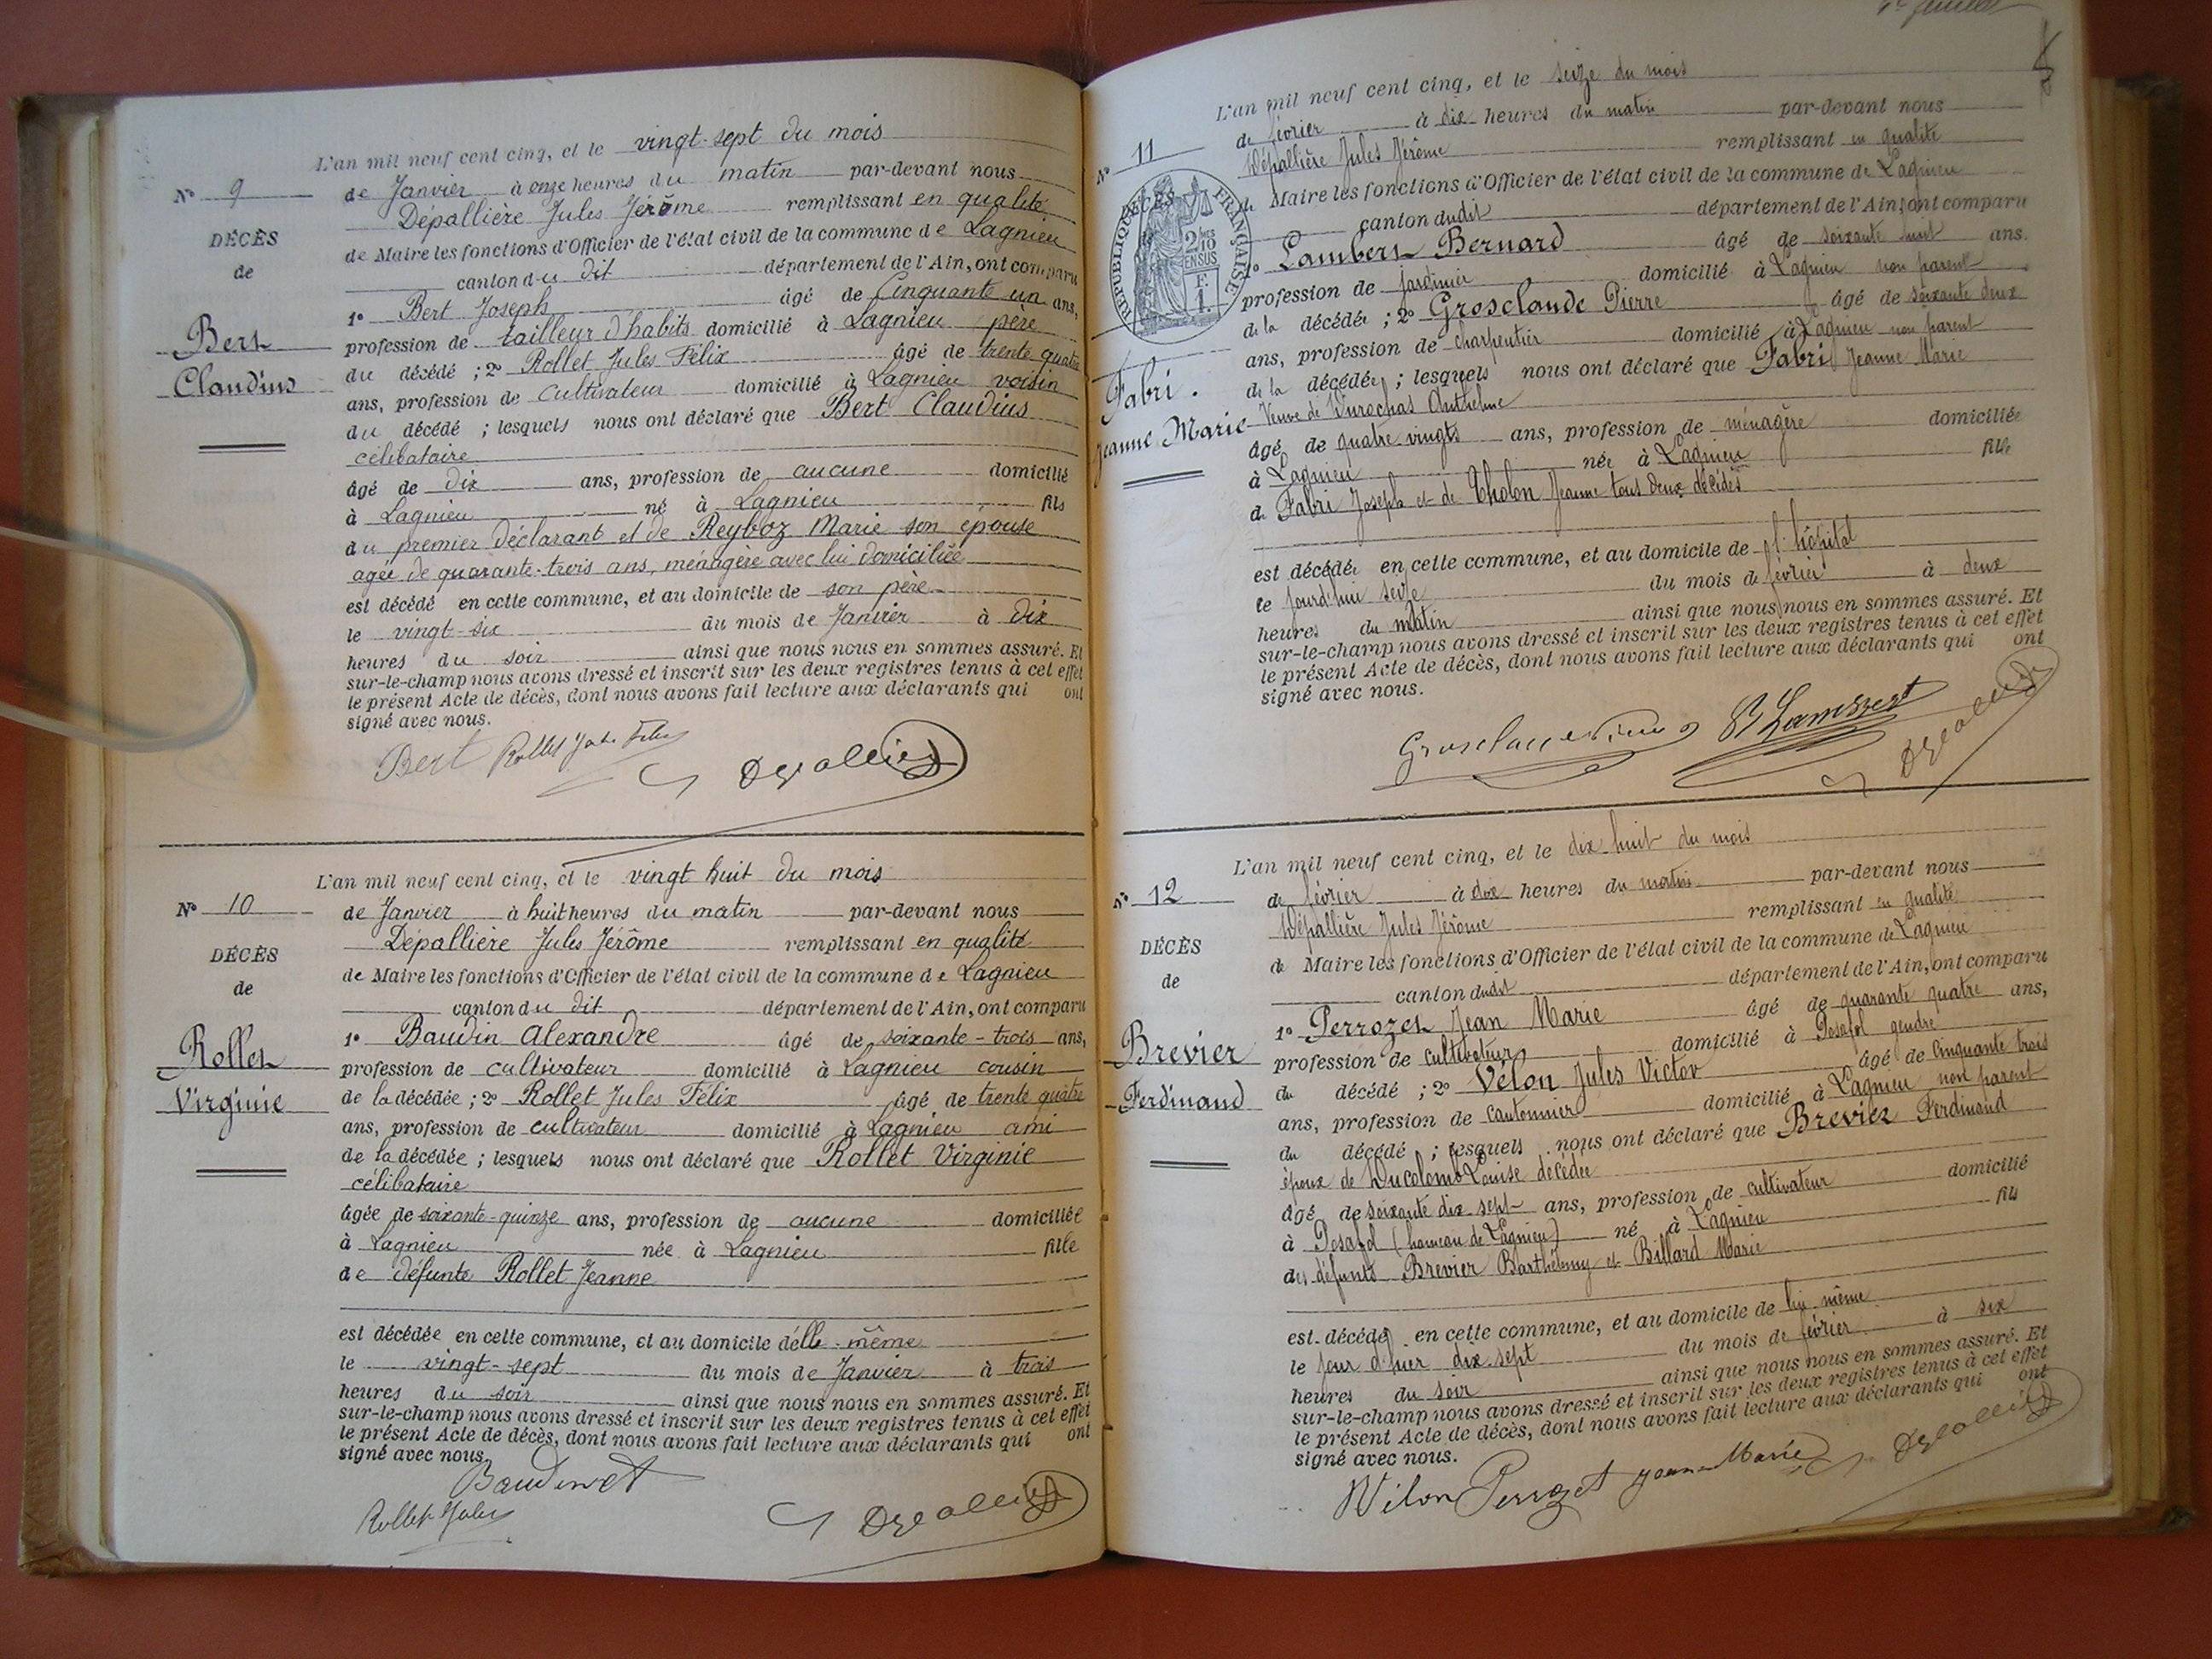 L'an mil neuf cent cinq, et le vingt-sept du mois
N° 9
de Janvier à onze heures du matin par-devant nous
Dépallière Jules Jérôme remplissant en qualité
DÉCÈS
de Maire les fonctions d'Officier de l'état civil de la commune de Lagnieu
de
canton du dit département de l'Ain, ont comparu
1° Bert Joseph âgé de Cinquante un ans,
Bert
profession de tailleur d'habits domicilié à Lagnieu père
Claudius
du décédé ; 2° Rollet Jules Félix âgé de trente quatre
ans, profession de cultivateur domicilié à Lagnieu voisin
du décédé ; lesquels nous ont déclaré que Bert Claudius
célibataire
âgé de dix ans, profession de aucune domicilié
à Lagnieu né à Lagnieu fils
du premier déclarant et de Reyboz Marie son épouse
agée de quarante-trois ans, ménagère avec lui domiciliée
est décédé en cette commune, et au domicile de son père
le vingt-six du mois de Janvier à dix
heures du soir ainsi que nous nous en sommes assuré. Et
sur-le-champ nous avons dressé et inscrit sur les deux registres tenus à cet effet
le présent Acte de décès, dont nous avons fait lecture aux déclarants qui ont
signé avec nous.
Bert Rollet Jules Félix
L'an mil neuf cent cinq, et le vingt huit du mois
N° 10
de Janvier à huit heures du matin par-devant nous
Dépallière Jules Jérôme remplissant en qualité
DÉCÈS
de Maire les fonctions d'Officier de l'état civil de la commune de Lagnieu
de
canton du dit département de l'Ain, ont comparu
1° Baudin Alexandre âgé de soixante-trois ans,
Rollet
profession de cultivateur domicilié à Lagnieu cousin
Virginie
de la décédée ; 2° Rollet Jules Félix âgé de trente quatre
ans, profession de cultivateur domicilié à Lagnieu ami
de la décédée ; lesquels nous ont déclaré que Rollet Virginie
célibataire
âgée de soixante-quinze ans, profession de aucune domiciliée
à Lagnieu née à Lagnieu fille
de défunte Rollet Jeanne
est décédée en cette commune, et au domicile d'elle-même
le vingt-sept du mois de Janvier à trois
heures du soir ainsi que nous nous en sommes assuré. Et
sur-le-champ nous avons dressé et inscrit sur les deux registres tenus à cet effet
le présent Acte de décès, dont nous avons fait lecture aux déclarants qui ont
signé avec nous.
Rollet Jules
L'an mil neuf cent cinq, et le seize du mois
N° 11
de février à dix heures du matin par-devant nous
Dépallière Jules Jérôme remplissant en qualité
de Maire les fonctions d'Officier de l'état civil de la commune de Lagnieu
RÉPUBLIQUE FRANÇAISE
DÉCÈS
canton dudit département de l'Ain, ont comparu
1° Lambert Bernard âgé de soixante huit ans.
profession de jardinier domicilié à Lagnieu non parent
de la décédée ; 2° Grosclaude Pierre âgé de soixante deux
ans, profession de charpentier domicilié à Lagnieu non parent
Fabri.
de la décédée ; lesquels nous ont déclaré que Fabri Jeanne Marie
Jeanne Marie
Veuve de Durochas Anthelme
âgé de quatre vingts ans, profession de ménagère domiciliée
à Lagnieu née à Lagnieu fille
de Fabri Joseph et de Tholon Jeanne tous deux décédés
est décédée en cette commune, et au domicile de l'hôpital
le jourd'hui seize du mois de février à deux
heures du matin ainsi que nous nous en sommes assuré. Et
sur-le-champ nous avons dressé et inscrit sur les deux registres tenus à cet effet
le présent Acte de décès, dont nous avons fait lecture aux déclarants qui ont
signé avec nous.
L'an mil neuf cent cinq, et le dix huit du mois
N° 12
de février à dix heures du matin par-devant nous
Dépallière Jules Jérôme remplissant en qualité
DÉCÈS
de Maire les fonctions d'Officier de l'état civil de la commune de Lagnieu
de
canton dudit département de l'Ain, ont comparu
1° Perrozet Jean Marie âgé de quarante quatre ans,
Brevier
profession de cultivateur domicilié à Posafol gendre
Ferdinand
du décédé ; 2° Vélon Jules Victor âgé de cinquante trois
ans, profession de cantonnier domicilié à Lagnieu non parent
du décédé ; lesquels nous ont déclaré que Brevier Ferdinand
époux de Ducolomb Louise décédée
âgé de soixante dix sept ans, profession de cultivateur domicilié
à Posafol (hameau de Lagnieu) né à Lagnieu fils
des défunts Brevier Barthélemy et Billard Marie
est décédé en cette commune, et au domicile de lui même
le jour d'hier dix sept du mois de février à six
heures du soir ainsi que nous nous en sommes assuré. Et
sur-le-champ nous avons dressé et inscrit sur les deux registres tenus à cet effet
le présent Acte de décès, dont nous avons fait lecture aux déclarants qui ont
signé avec nous.
Vélon Perrozet Jean-Marie